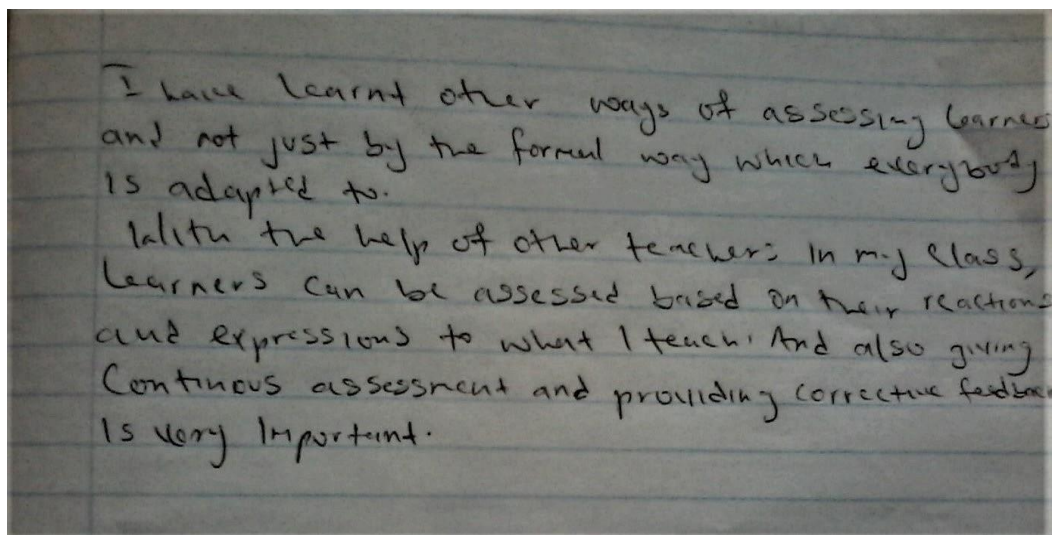 I have learnt other ways of assessing learners
and not just by the formal way which everybody
is adapted to.
With the help of other teachers in my class,
Learners can be assessed based on their reactions
and expressions to what I teach. And also giving
Continous assessment and providing corrective feedback
Is very Important.